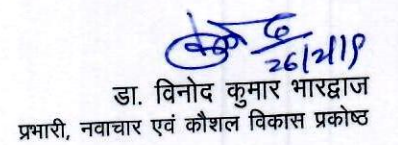 26/2/19
डा. विनोद कुमार भारद्वाज
प्रभारी, नवाचार एवं कौशल विकास प्रकोष्ठ